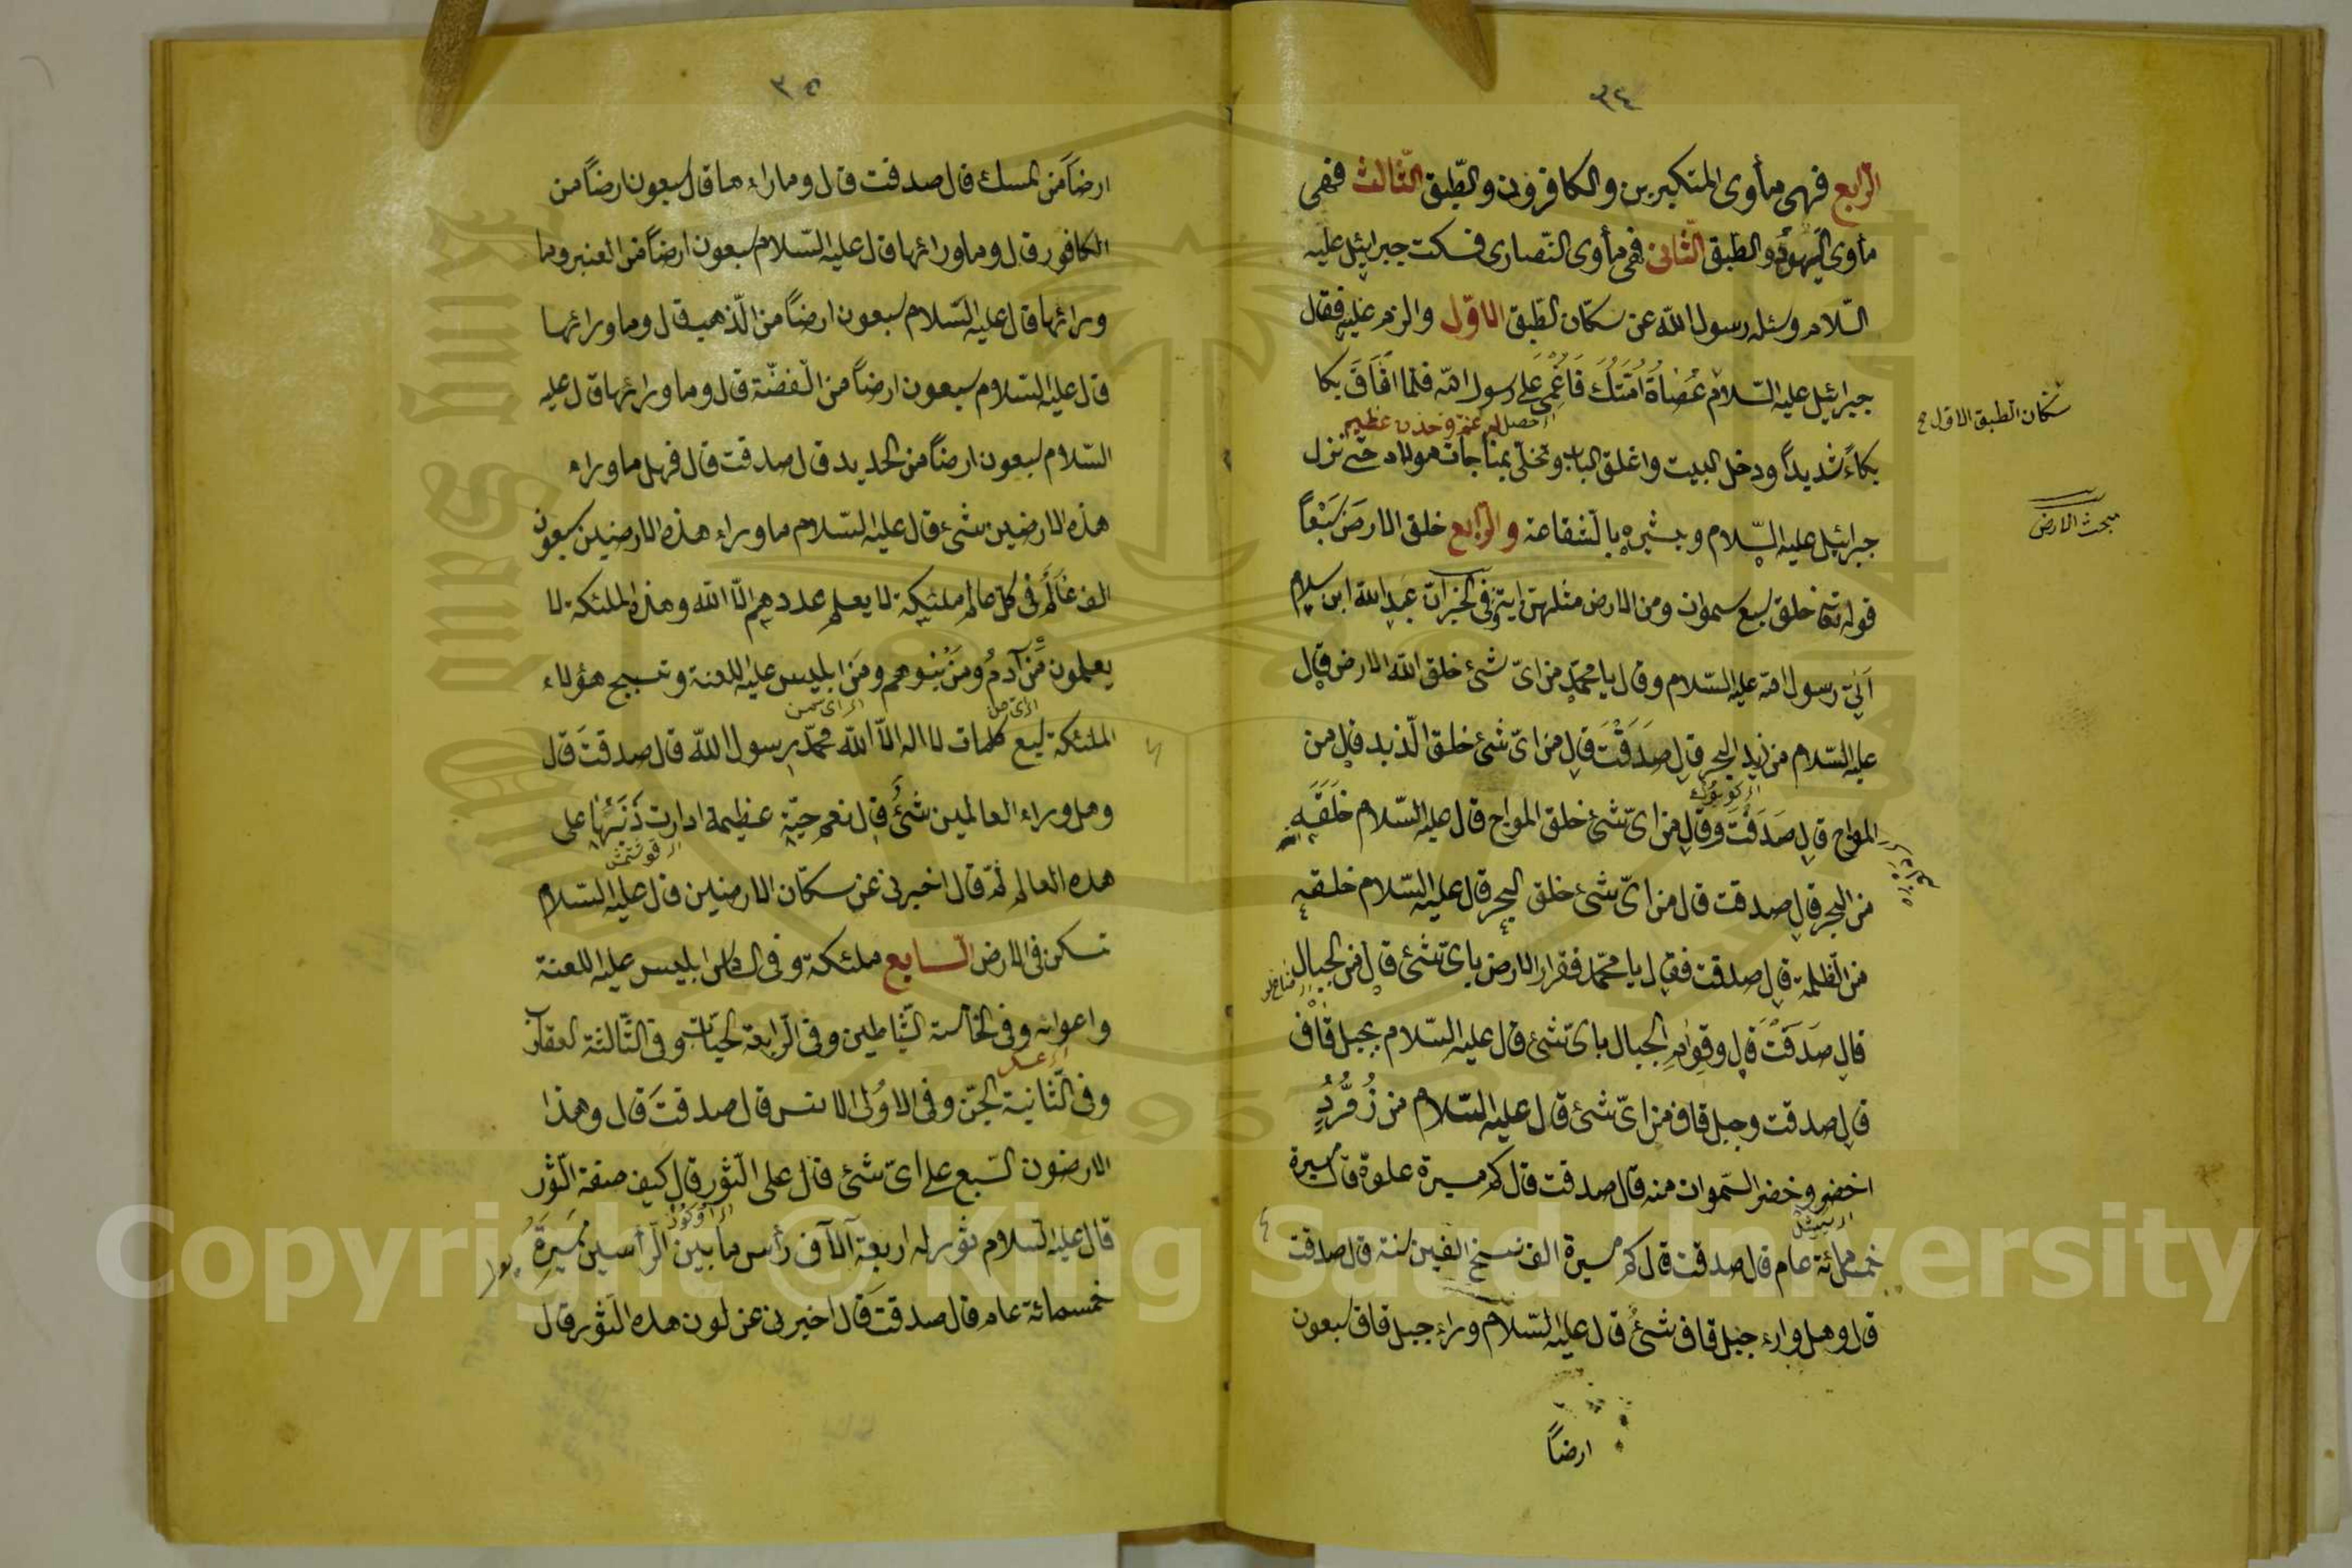 ٣٤
الرّابع فهى مأوى المتكبرين والكافرون والطّبق الثّالث ففى
مأوى اليهود والطبق الثّانى ففى مأوى النّصارى فسكت جبرائيل عليه
السّلام وسئله رسول اللّه عن سكّان الطّبق الاوّل والزم عليه فقال
جبرائيل عليه السّلام عُصَاةُ اُمَّتِكَ فَاُغْمِىَ على رسول اللّه فلمّا اَفَاقَ بكا
بكاءً شديداً ودخل البيت واغلق الباب وتخلّى بمناجات مولاه حتى نزل
جبرائيل عليه السّلام وبشره بالشفاعة والرّابع خلق الارضَ سَبْعاً
قوله تعا خلق سبع سموات ومن الارض مثلهن اية وفى الخبر ان عبد اللّه ابن سلام
اَتٰى رسول اللّه عليه السّلام وقال يا محمّد من اىّ شئ خلق اللّه الارض قال
عليه السّلام من زبد البحر قال صَدَقْتَ قال من اىّ شئ خلق الزبد قال من
المواج قال صَدَقْتَ وقال من اىّ شئ خلق المواج قال عليه السّلام خَلَقَهِ
من البحر قال صدقت قال من اىّ شئ خلق البحر قال عليه السّلام خلقه
من الظلمة قال صدقت فقال يا محمّد فقرار الارض باىّ شئ قال من الجبال
قال صَدَقْتَ قال وقوام الجبال باىّ شئ قال عليه السّلام بجبل قاف
قال صدقت وجبل قاف من اىّ شئ قال عليه السّلام من زُمُرُّدٍ
اخضر وخضر السّموات منه قال صدقت قال كم مسيرة علوه قال مسيرة
خمسمائة عام قال صدقت قال كم مسيرة الف نسخ الفين سنة قال صدقت
قال وهل وراء جبل قاف شئ قال عليه السّلام وراء جبل قاف سبعون
ارضاً
سكّان الطبق الاول
مبحث الارض
٣٥
ارضاً من المسك قال صدقت قال وما وراءها قال سبعون ارضاً من
الكافور قال وما ورائها قال عليه السّلام سبعون ارضاً من العنبر وما
ورائها قال عليه السّلام سبعون ارضاً من الذّهب قال وما ورائها
قال عليه السّلام سبعون ارضاً من الفضّة قال وما ورائها قال عليه
السّلام سبعون ارضاً من الحديد قال صدقت قال فهل ما وراء
هذه الارضين شئ قال عليه السّلام ما وراء هذه الارضين سبعون
الف عَالَمٍ فى كلّ عالم ملئكة لا يعلم عددهم الّا اللّه وهذه الملئكة لا
يعلمون مَنْ آدمُ ومَنْ بَنُوهم ومَن ابليس عليه اللعنة وتسبيح هؤلاء
الملئكة سبع كلمات لا اله الّا اللّه محمّد رسول اللّه قال صدقتَ قال
وهل وراء العالمين شئٌ قال نعم حيّة عظيمة ادارت ذَنَبَهَا على
هذه العالم ثمّ قال اخبرنى عن سكّان الارضين قال عليه السّلام
تسكن فى الارض السّابع ملئكة وفى السادس ابليس عليه اللعنة
واعوانه وفى الخامسة الشّياطين وفى الرّابعة الحيّات وفى الثّالثة العقارب
وفى الثّانية الجنّ وفى الاوُلى الانس قال صدقتَ قال وهذا
الارضون السّبع على اىّ شئ قال على الثّور قال كيف صفة الثّور
قال عليه السّلام ثور له اربعة آلاف رأس ما بين الرأسين مَسِيرَةُ
خمسمائة عام قال صدقت قال اخبرنى عن لون هذه الثّور قال
Copyright © King Saud University